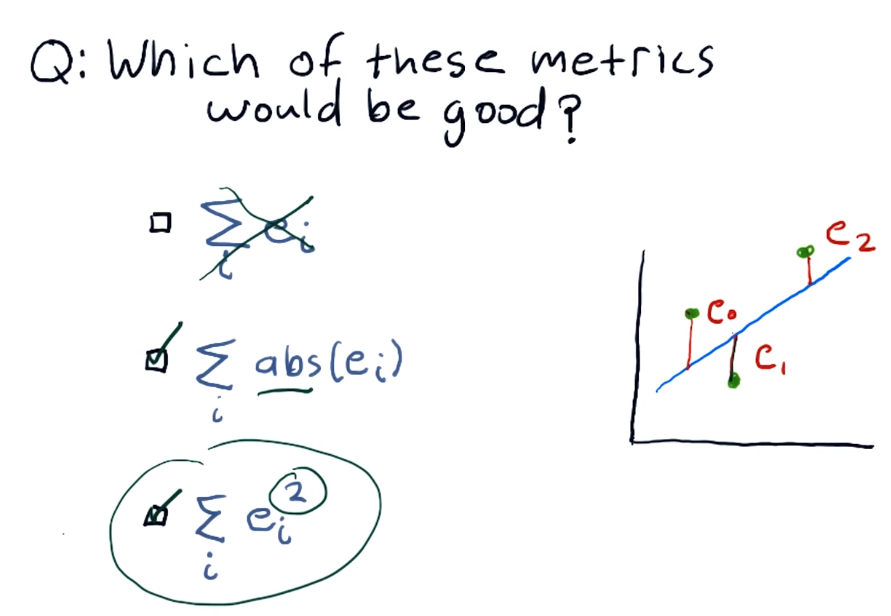 Q: Which of these metrics
would be good?
Σ e_i
i
Σ abs(e_i)
i
Σ e_i^2
i
e_2
e_0
e_1